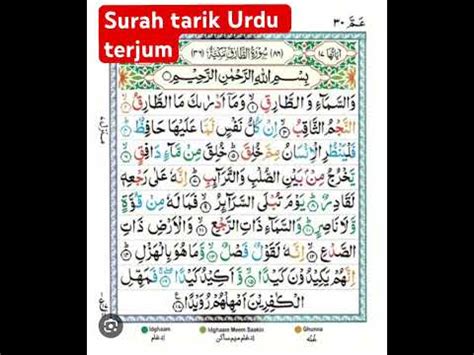 Surah tarik Urdu
terjum
عَمَّ ٣٠
اٰيَاتُهَا ١٧ (٨٦) سُوْرَةُ الطَّارِقِ مَكِّيَّةٌ (٣٦)
بِسْمِ اللّٰهِ الرَّحْمٰنِ الرَّحِيْمِ
وَالسَّمَآءِ وَ الطَّارِقِ ۝ وَمَآ اَدْرٰىكَ مَا الطَّارِقُ ۝
النَّجْمُ الثَّاقِبُ ۝ اِنْ كُلُّ نَفْسٍ لَّمَّا عَلَيْهَا حَافِظٌ ۝
فَلْيَنْظُرِ الْاِنْسَانُ مِمَّ خُلِقَ ۝ خُلِقَ مِنْ مَّآءٍ دَافِقٍ ۝
يَّخْرُجُ مِنْۢ بَيْنِ الصُّلْبِ وَالتَّرَآئِبِ ۝ اِنَّهٗ عَلٰى رَجْعِهٖ
لَقَادِرٌ ۝ يَوْمَ تُبْلَى السَّرَآئِرُ ۝ فَمَا لَهٗ مِنْ قُوَّةٍ
وَّلَا نَاصِرٍ ۝ وَالسَّمَآءِ ذَاتِ الرَّجْعِ ۝ وَالْاَرْضِ ذَاتِ
الصَّدْعِ ۝ اِنَّهٗ لَقَوْلٌ فَصْلٌ ۝ وَّمَا هُوَ بِالْهَزْلِ ۝
اِنَّهُمْ يَكِيْدُوْنَ كَيْدًا ۝ وَّاَكِيْدُ كَيْدًا ۝ فَمَهِّلِ
الْكٰفِرِيْنَ اَمْهِلْهُمْ رُوَيْدًا ۝
Idghaam Idghaam Meem Saakin Ghunna
ادغام ادغام میم ساکن غنہ